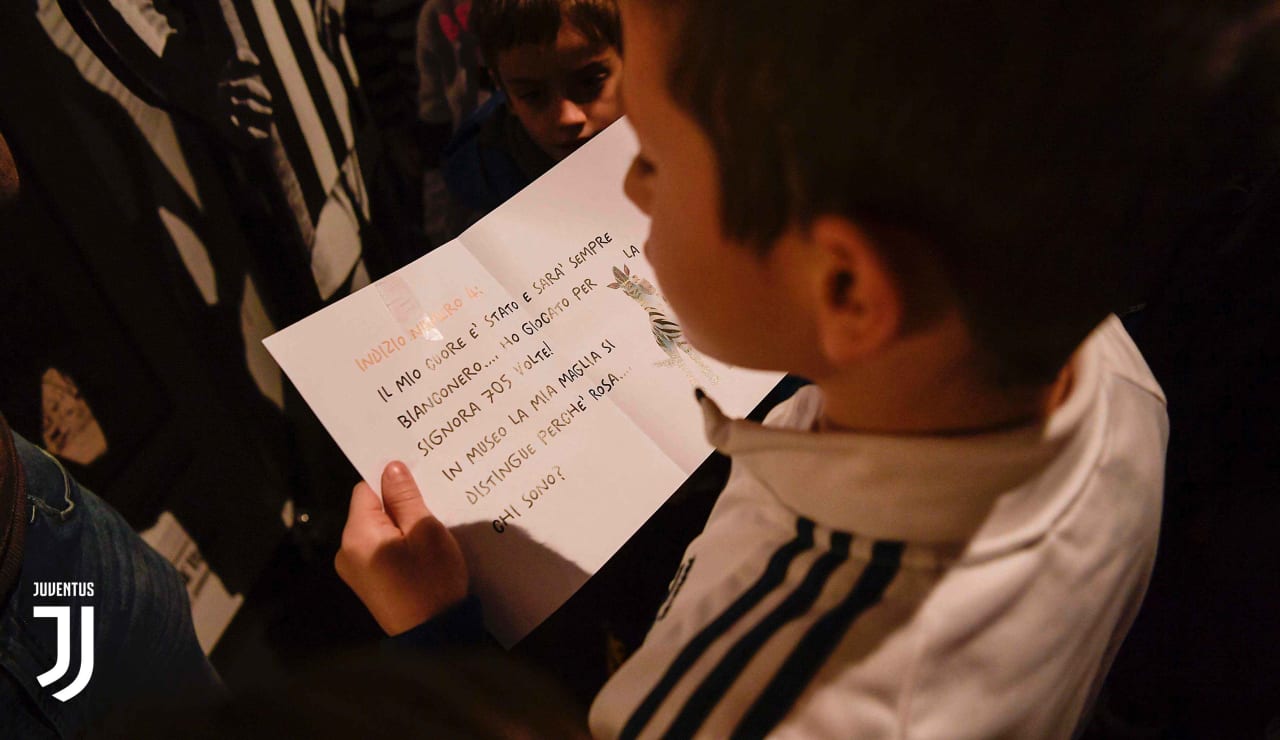 INDIZIO NUMERO 4:
IL MIO CUORE E' STATO E SARA' SEMPRE
BIANCONERO.... HO GIOCATO PER LA
SIGNORA 705 VOLTE!
IN MUSEO LA MIA MAGLIA SI
DISTINGUE PERCHE' ROSA....
CHI SONO?
JUVENTUS